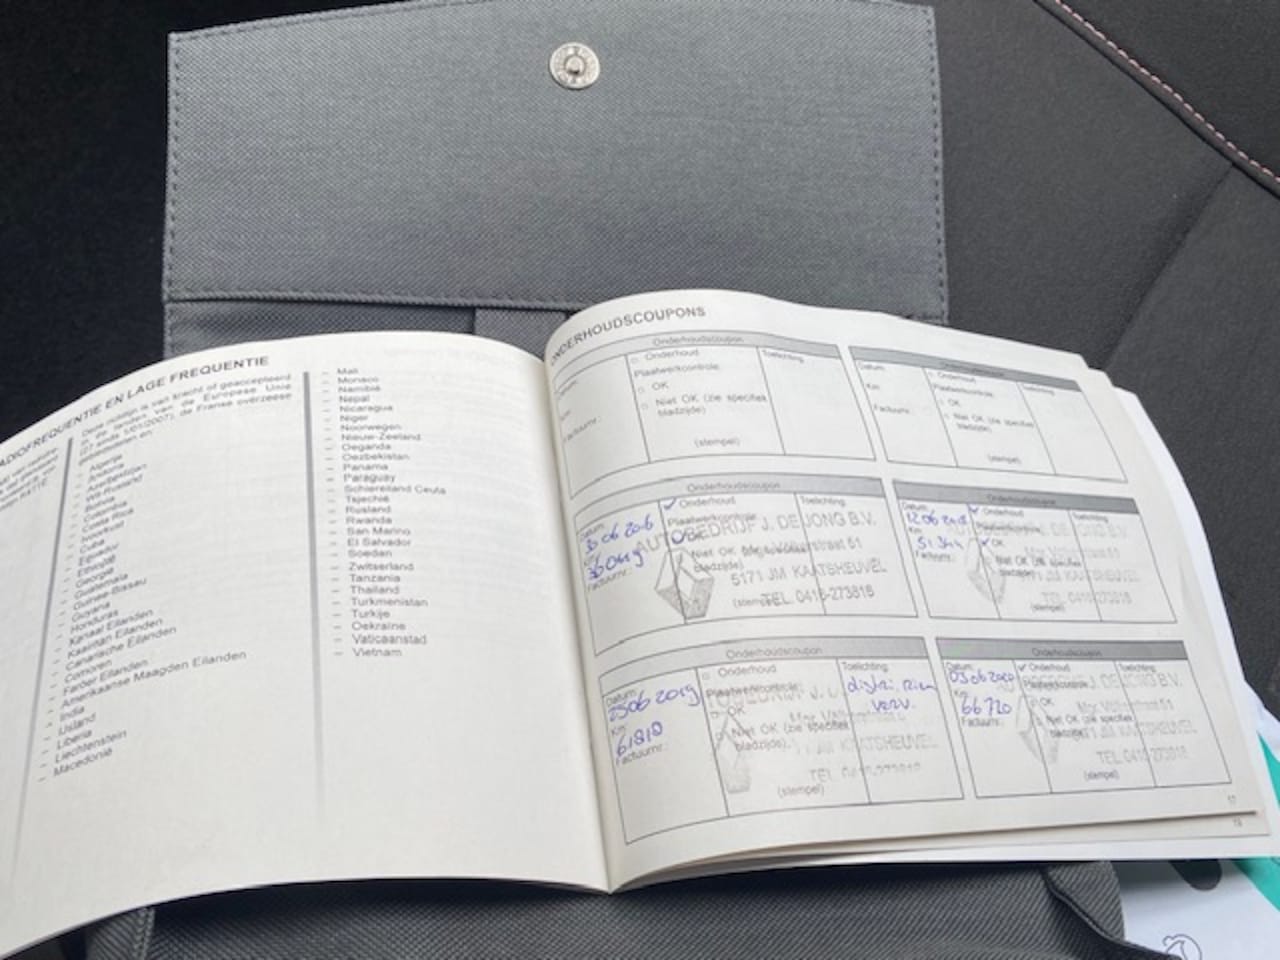 RADIOFREQUENTIE EN LAGE FREQUENTIE
Deze richtlijn is van kracht of geaccepteerd
in de landen van de Europese Unie
(27 sinds 1/01/2007), de Franse overzeese
gebieden en:
– Algerije
– Andorra
– Azerbeidzjan
– Wit-Rusland
– Bolivia
– Colombia
– Costa Rica
– Ivoorkust
– Cuba
– Egypte
– Ethiopië
– Georgië
– Guatemala
– Guinee-Bissau
– Guyana
– Honduras
– Kanaal Eilanden
– Kaaiman Eilanden
– Canarische Eilanden
– Comoren
– Faröer Eilanden
– Amerikaanse Maagden Eilanden
– India
– IJsland
– Liberia
– Liechtenstein
– Macedonië
– Mali
– Monaco
– Namibië
– Nepal
– Nicaragua
– Niger
– Noorwegen
– Nieuw-Zeeland
– Oeganda
– Oezbekistan
– Panama
– Paraguay
– Schiereiland Ceuta
– Tsjechië
– Rusland
– Rwanda
– San Marino
– El Salvador
– Soedan
– Zwitserland
– Tanzania
– Thailand
– Turkmenistan
– Turkije
– Oekraïne
– Vaticaanstad
– Vietnam
ONDERHOUDSCOUPONS
Onderhoudscoupon
Datum:
Km:
Factuurnr.:
Onderhoud
Plaatwerkcontrole:
OK
Niet OK (zie specifiek
bladzijde)
(stempel)
Toelichting
Onderhoudscoupon
Datum:
Km:
Factuurnr.:
Onderhoud
Plaatwerkcontrole:
OK
Niet OK (zie specifiek
bladzijde)
(stempel)
Toelichting
Onderhoudscoupon
Datum:
30 06 2016
Km:
36049
Factuurnr.:
Onderhoud
Plaatwerkcontrole:
OK
Niet OK (zie specifiek
bladzijde)
(stempel)
Toelichting
AUTOBEDRIJF J. DE JONG B.V.
5171 JM KAATSHEUVEL
TEL. 0416-273818
Onderhoudscoupon
Datum:
12 06 2018
Km:
51344
Factuurnr.:
Onderhoud
Plaatwerkcontrole:
OK
Niet OK (zie specifiek
bladzijde)
(stempel)
Toelichting
J. DE JONG B.V.
KAATSHEUVEL
TEL. 0416-273818
Onderhoudscoupon
Datum:
25 06 2019
Km:
61818
Factuurnr.:
Onderhoud
Plaatwerkcontrole:
OK
Niet OK (zie specifiek
bladzijde)
(stempel)
Toelichting
distri. riem
verv.
JM KAATSHEUVEL
TEL. 0416-273818
Onderhoudscoupon
Datum:
03 06 2020
Km:
66720
Factuurnr.:
Onderhoud
Plaatwerkcontrole:
OK
Niet OK (zie specifiek
bladzijde)
(stempel)
Toelichting
J. DE JONG B.V.
5171 JM KAATSHEUVEL
TEL. 0416-273818
17
19